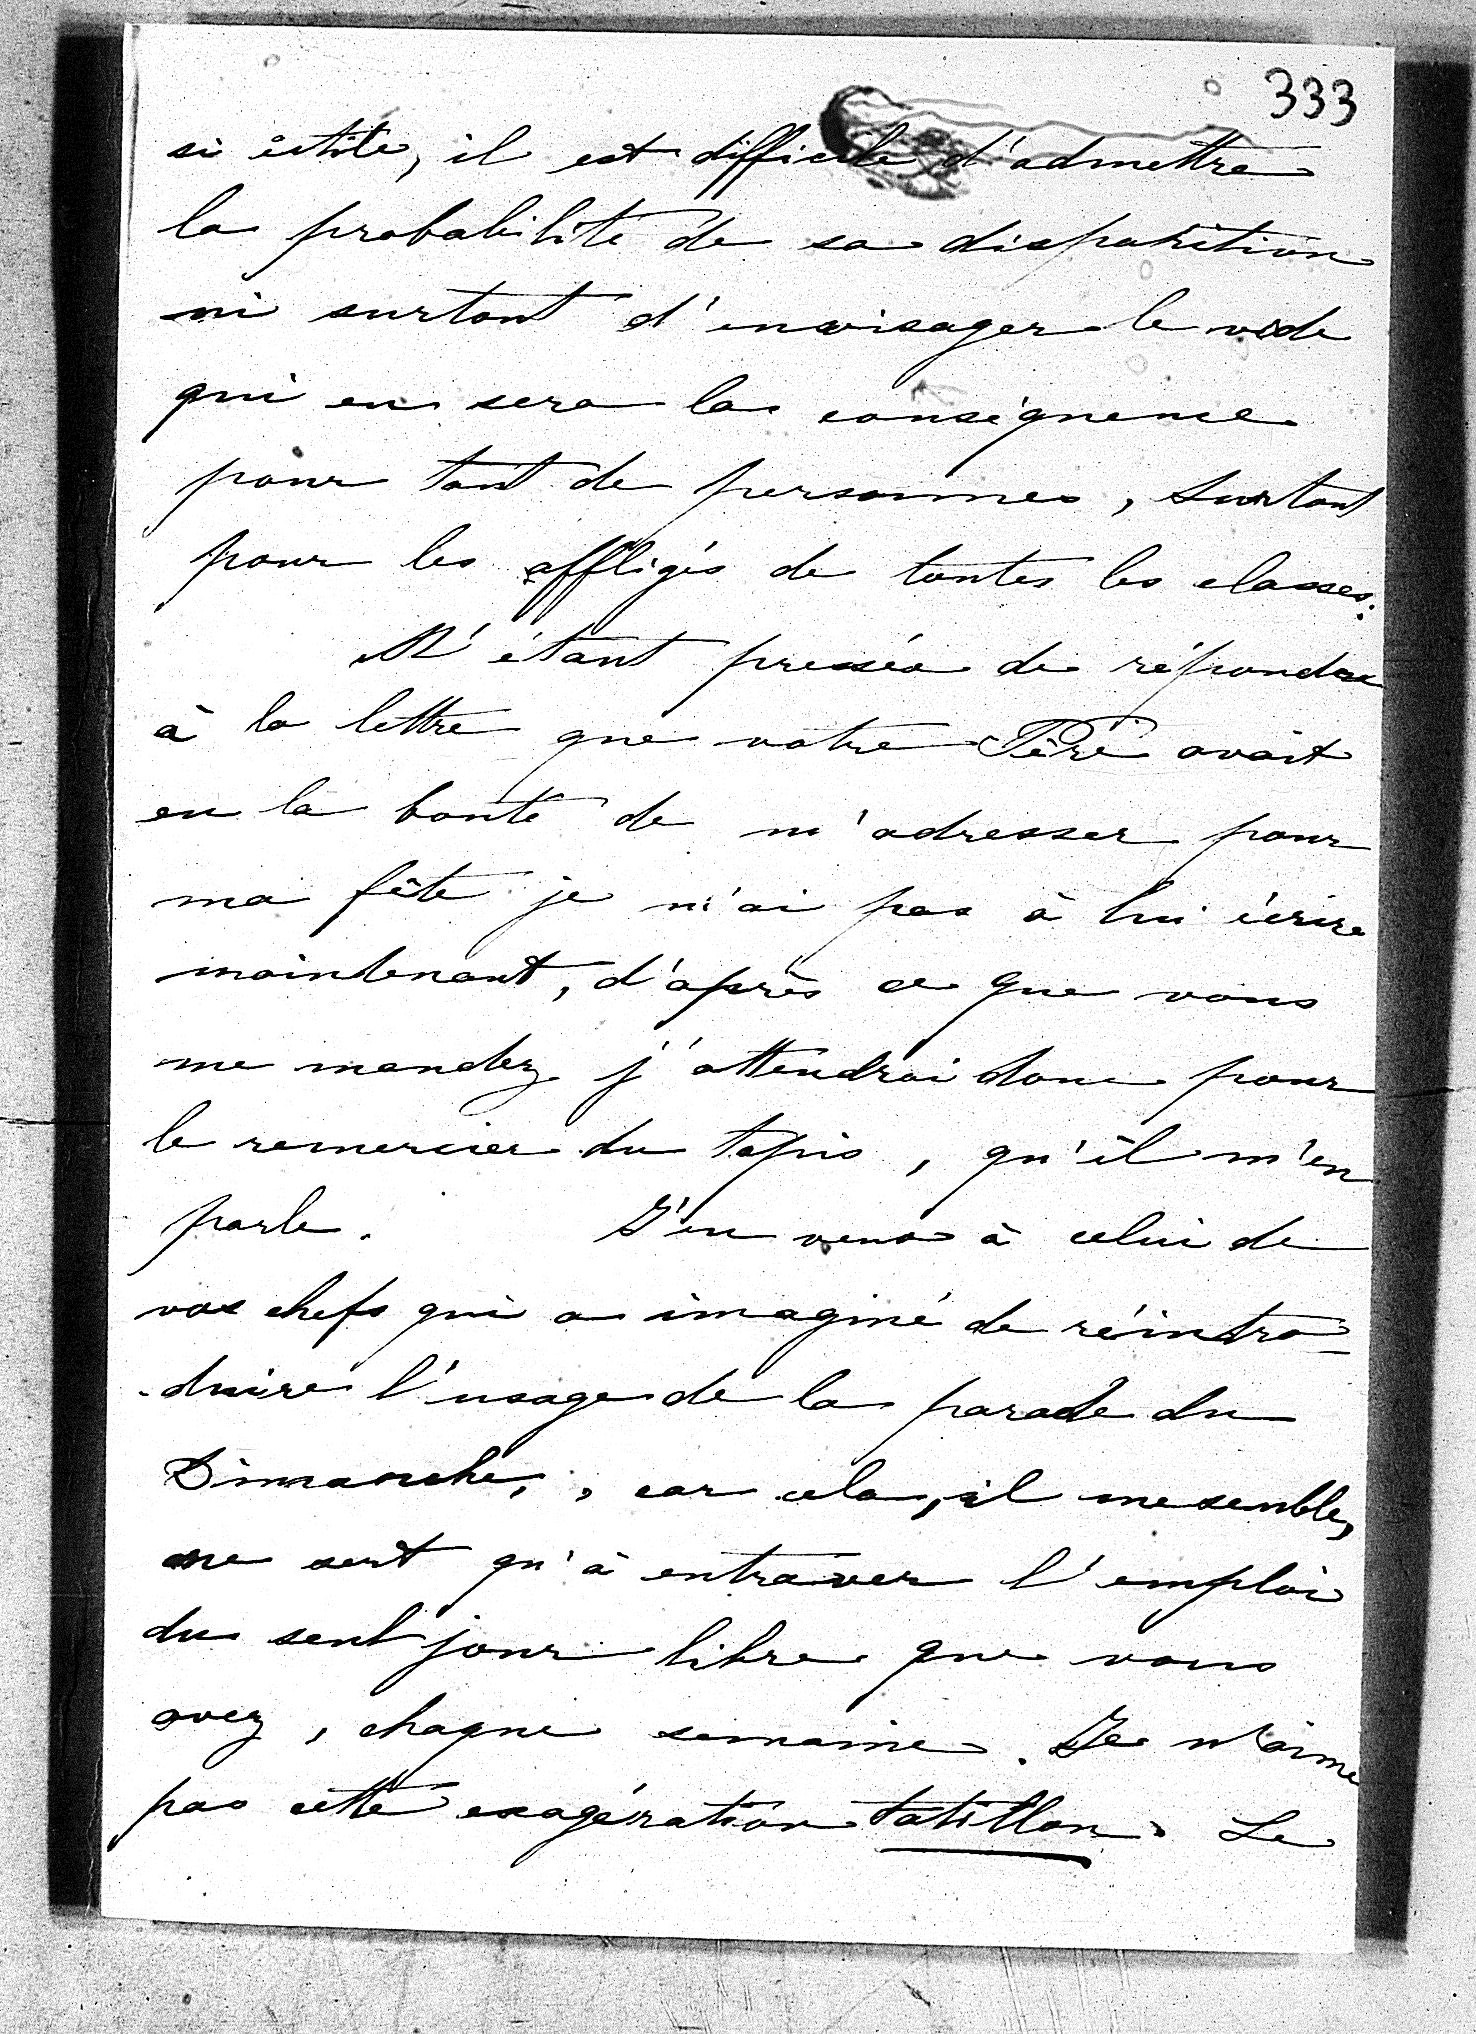 333
si utile, il est difficile d'admettre
la probabilité de sa disparition
ni surtout d'envisager le vide
qui en sera la conséquence
pour tant de personnes, surtout
pour les affligés de toutes les classes.
M'étant pressée de répondre
à la lettre que votre Père avait
eu la bonté de m'adresser pour
ma fête je n'ai pas à lui écrire
maintenant, d'après ce que vous
me mandez j'attendrai donc pour
le remercier du tapis, qu'il m'en
parle. J'en veux à celui de
vos chefs qui a imaginé de réintro-
-duire l'usage de la parade du
Dimanche, car cela, il me semble,
ne sert qu'à entraver l'emploi
du seul jour libre que vous
avez, chaque semaine. Je n'aime
pas cette exagération tatillon. Le